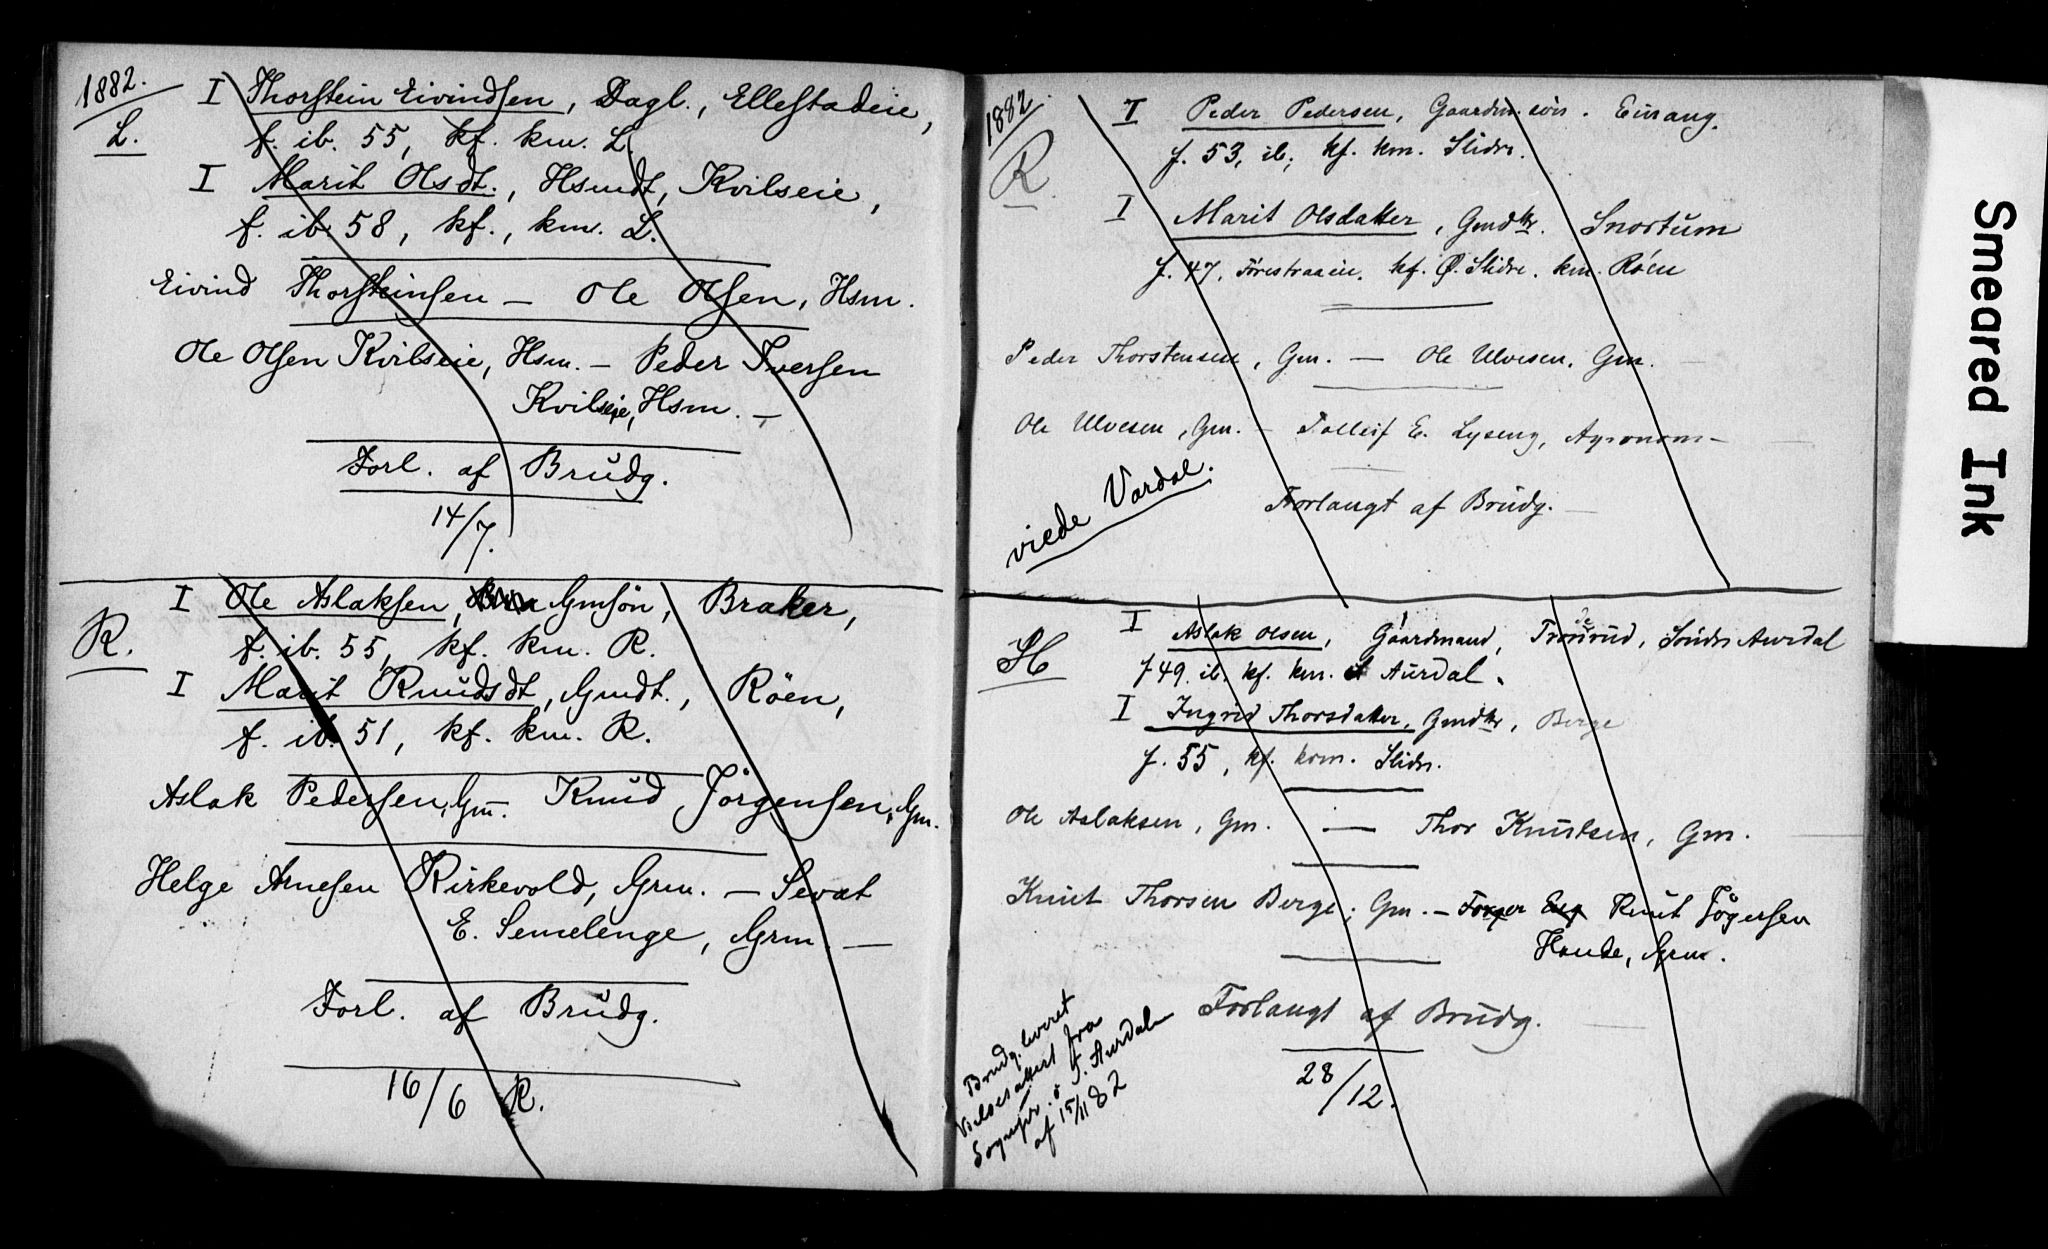 1882.
L.
I Thorstein Eivindsen, Dagl., Ellestadeie,
f. ib. 55, kf. km. L.
I Marit Olsdt., Hsmdt, Kvilseie,
f. ib. 58, kf., km. L.
Eivind Thorsteinsen – Ole Olsen, Hsm.
Ole Olsen Kvilseie, Hsm. – Peder Iversen
Kvilseie, Hsm. –
Forl. af Brudg.
14/7.
R.
I Ole Aslaksen, Gmsön, Braker,
f. ib. 55, kf. km. R.
I Marit Knudsdt, Gmdt., Röen,
f. ib. 51, kf. km. R.
Aslak Pedersen, Gm. – Knud Jörgensen, Gm.
Helge Arnesen Kirkevold, Grm. – Sevat
E. Semelenge, Grm. –
Forl. af Brudg.
16/6 R.
1882.
R
I Peder Pedersen, Gaardm.sön. Einang.
f. 53, ib., kf. km. Slidre.
I Marit Olsdatter, Gmdtr. Snortum
f. 47, kf. Ø. Slidre. km. Röen
Peder Thorstensen, Gm. — Ole Ulvesen, Gm. –
Ole Ulvesen, Gm. – Tolleif E. Lyseng, Agronom –
viede Vardal.
Forlangt af Brudg. –
H
I Aslak Olsen, Gaardmand, Söndre Aurdal
f 49. ib. kf. km. Aurdal.
I Ingrid Thorsdatter, Gmdtr, Berge
f. 55, kf. kom. Slidre.
Ole Aslaksen, Gm. — Thor Knutsen, Gm.
Knut Thorsen Berge, Gm. – Knut Jögersen
Hande, Grm.
Forlangt af Brudg.
28/12.
Brudg. leveret
Vielsesattest fra
Sognepr. i S. Aurdal
af 15/11 82
Smeared Ink